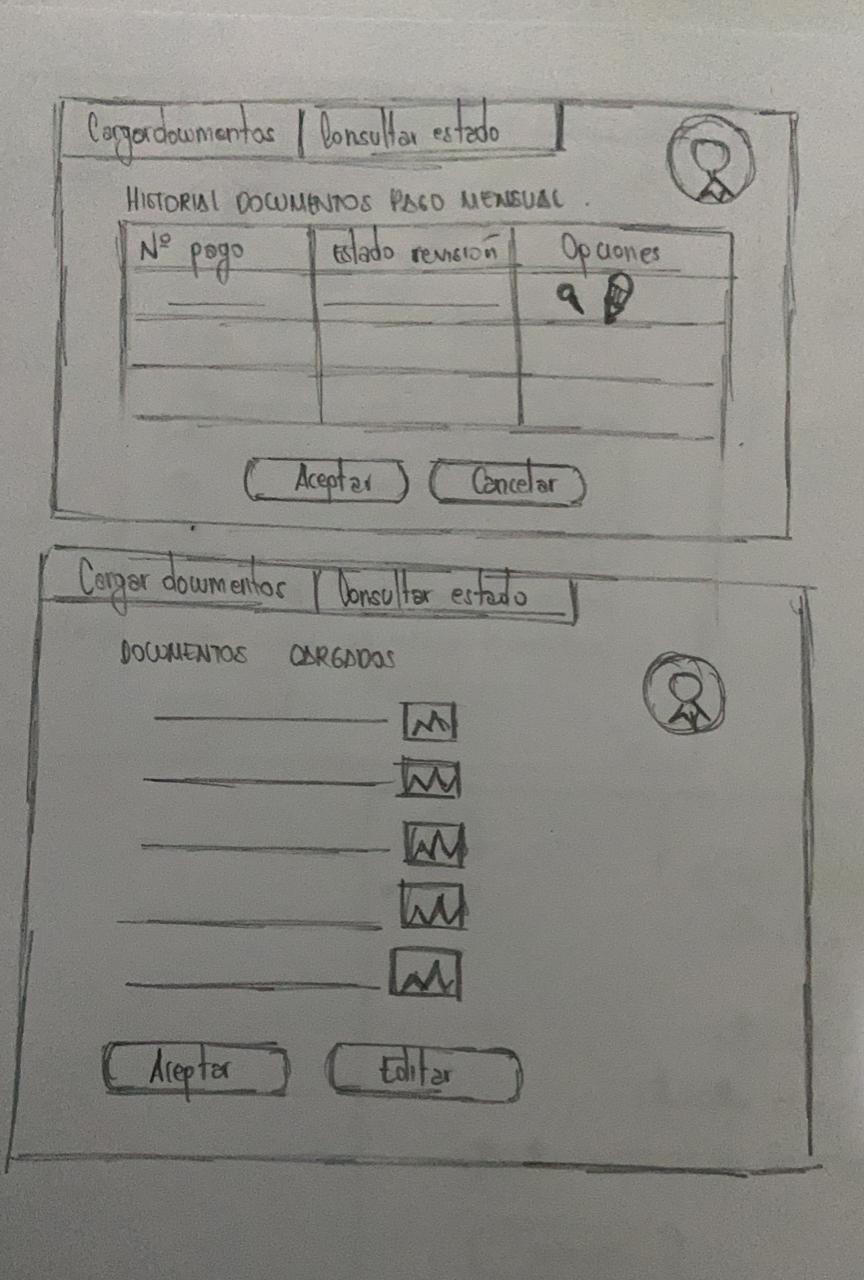 Cargar documentos | Consultar estado
HISTORIAL DOCUMENTOS PAGO MENSUAL.
Nº pago Estado revisión Opciones
Aceptar Cancelar
Cargar documentos | Consultar estado
DOCUMENTOS CARGADOS
Aceptar Editar